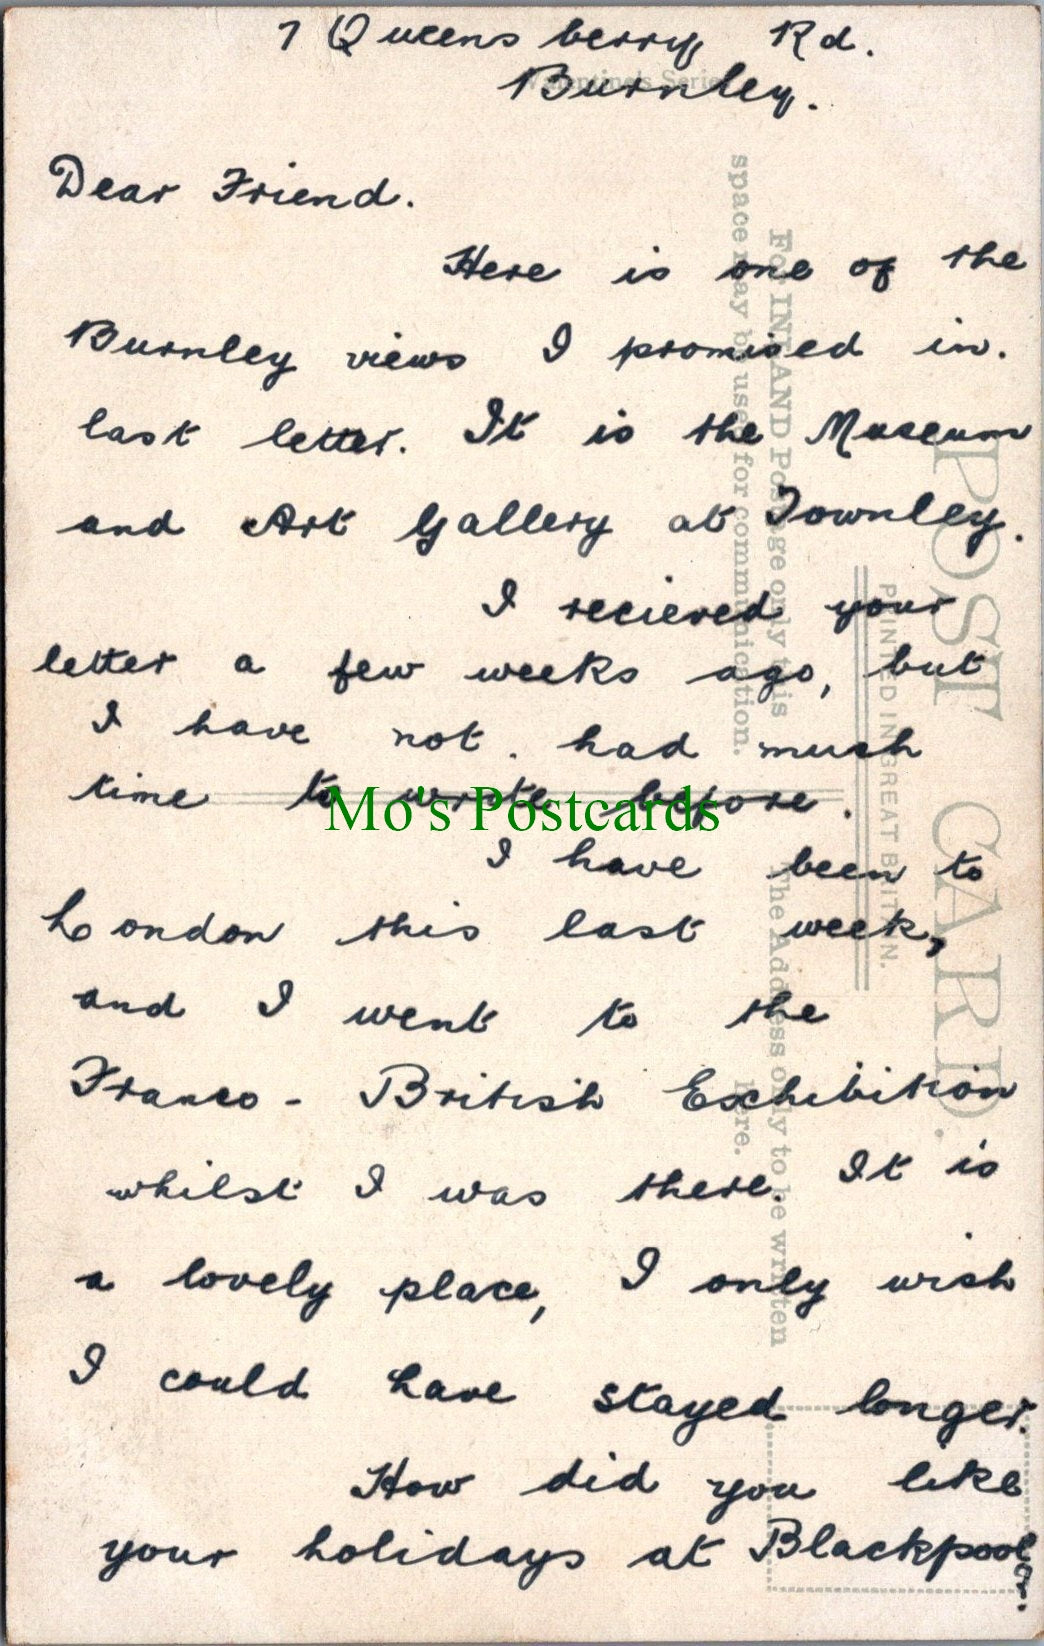 7 Queensberry Rd.
Burnley.
Dear Friend.
Here is one of the
Burnley views I promised in.
last letter. It is the Museum
and Art Gallery at Townley.
I recieved your
letter a few weeks ago, but
I have not. had much
time to write before.
I have been to
London this last week,
and I went to the
Franco - British Exhibition
whilst I was there. It is
a lovely place, I only wish
I could have stayed longer.
How did you like
your holidays at Blackpool?
Valentine's Series
For INLAND Postage only this
space may be used for communication.
POST CARD.
PRINTED IN GREAT BRITAIN.
The Address only to be written
here.
Mo's Postcards